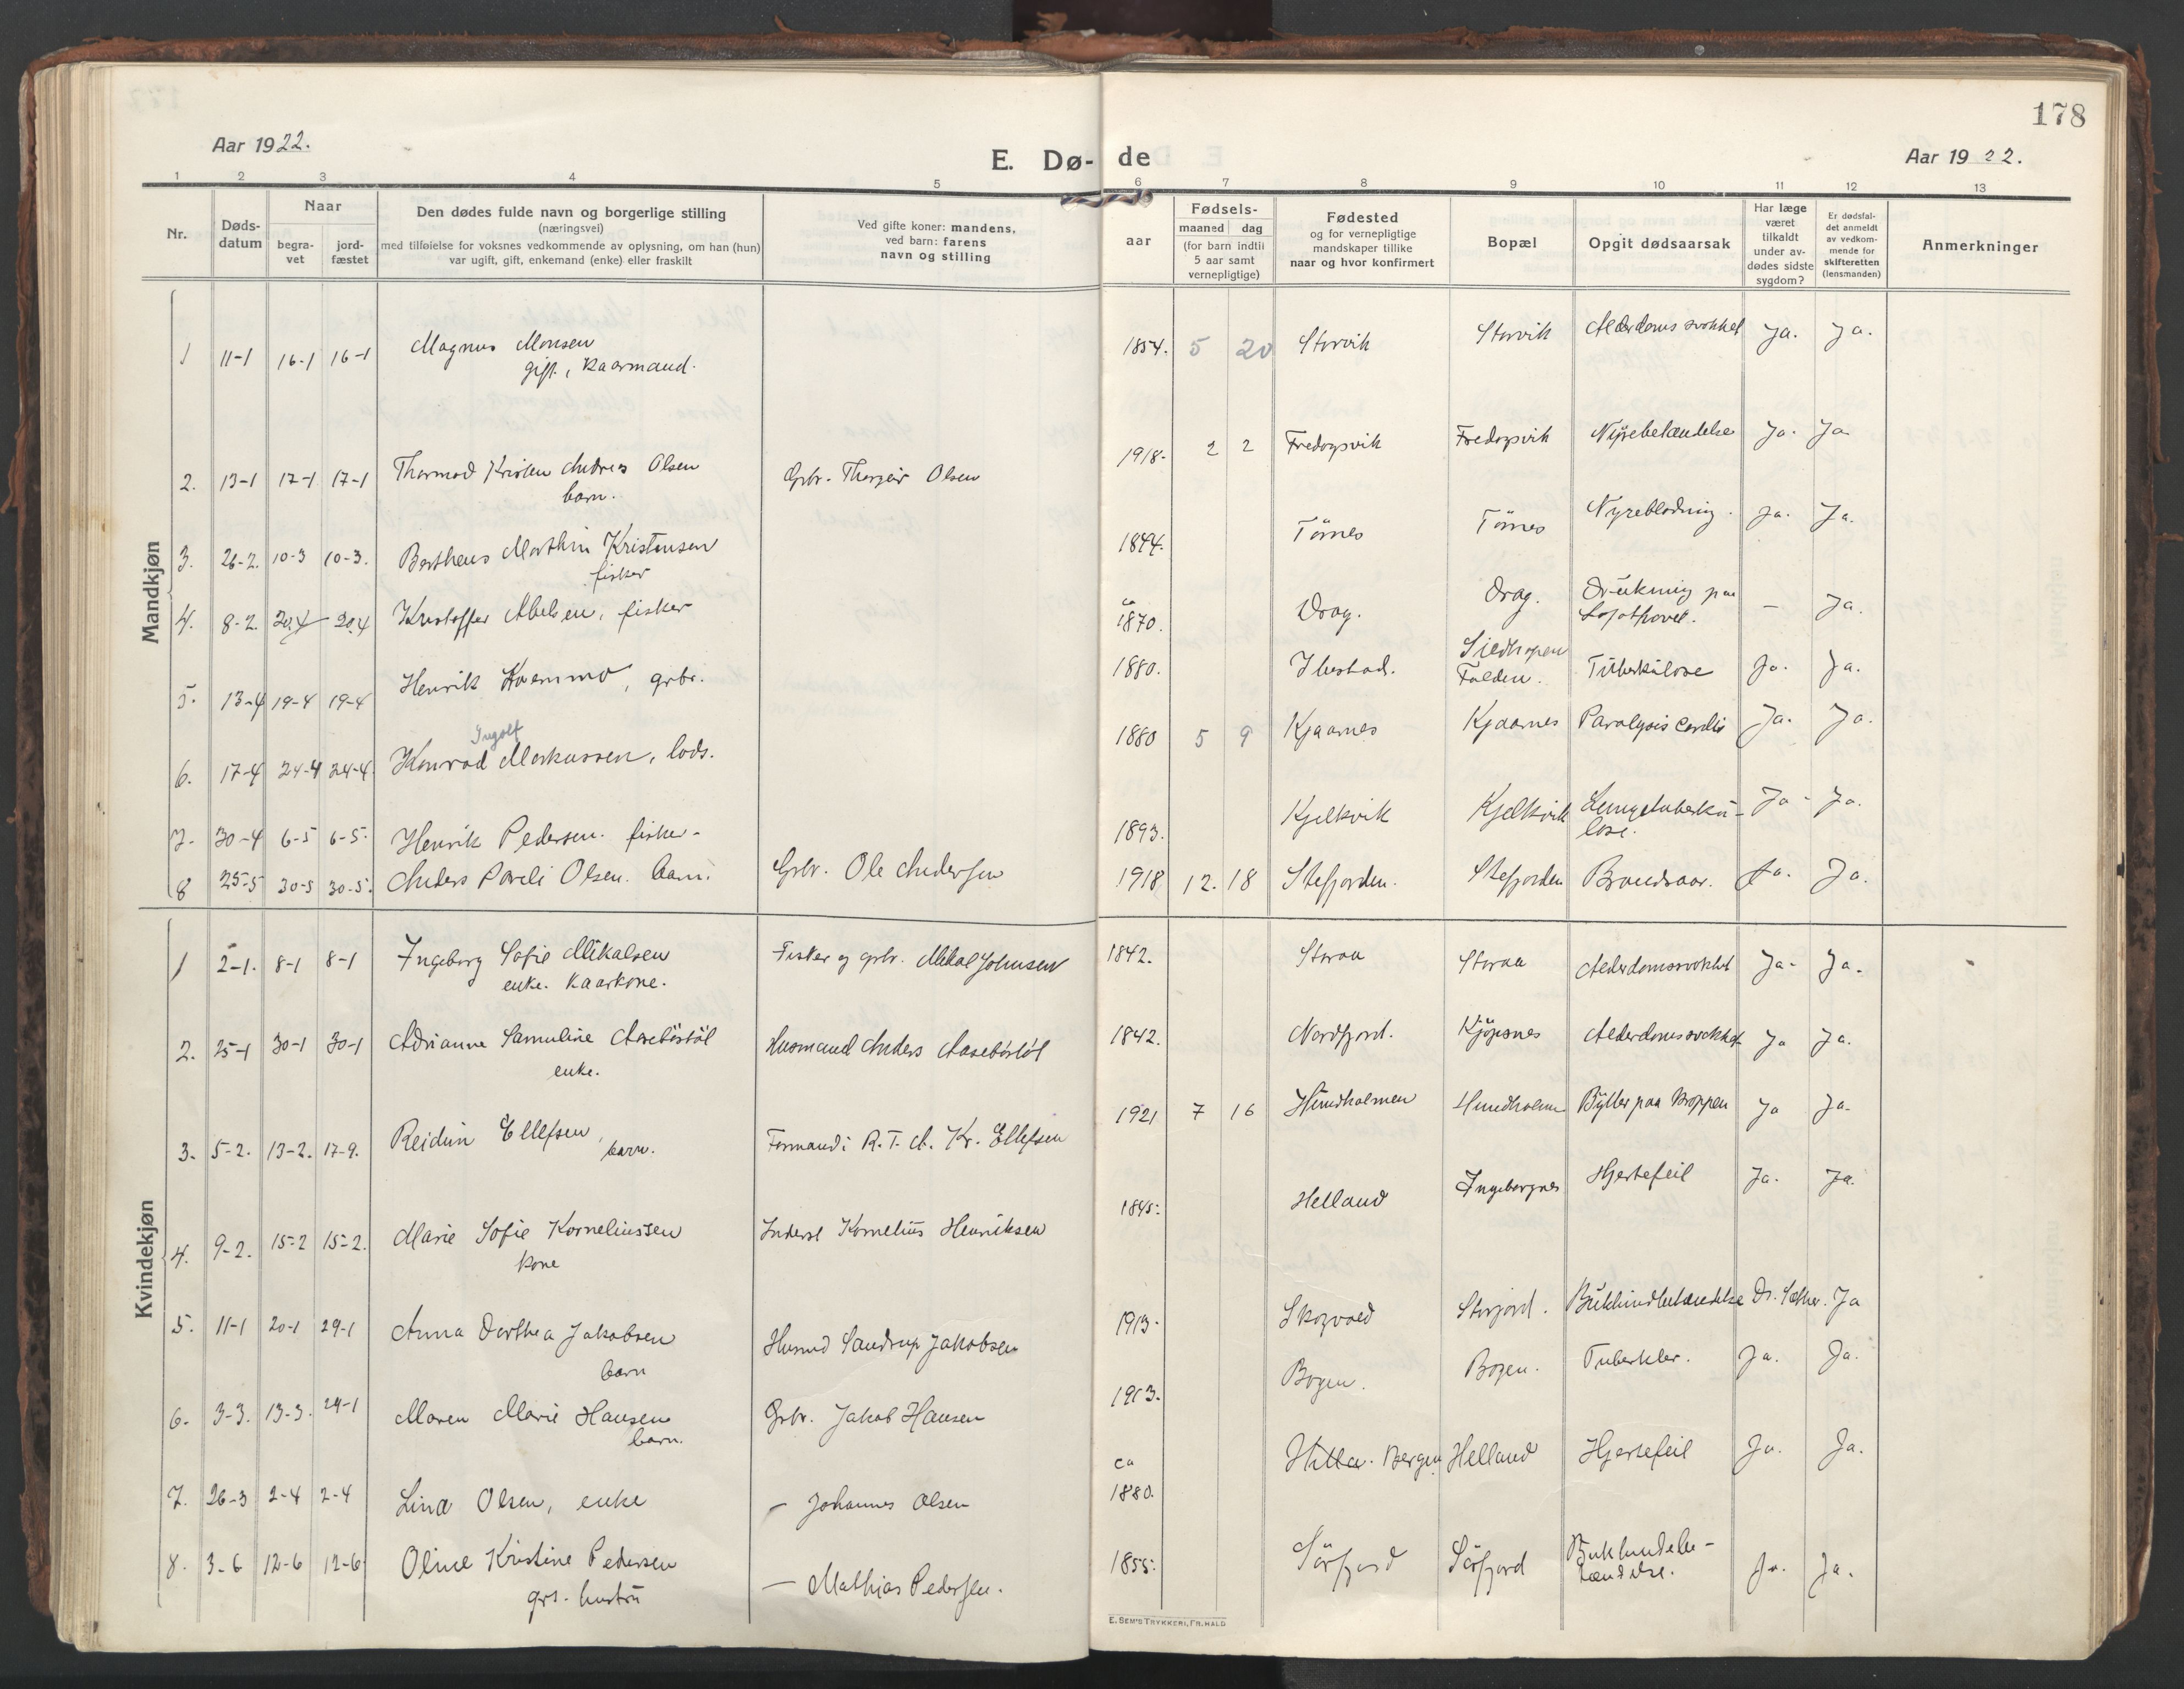 178
Aar 1922.
E. Dø-de
Aar 1922.
1 2 3 4 5 6 7 8 9 10 11 12 13
Nr.
Døds-
datum
Naar
begra-
vet
jord-
fæstet
Den dødes fulde navn og borgerlige stilling
(næringsvei)
med tilføielse for voksnes vedkommende av oplysning, om han (hun)
var ugift, gift, enkemand (enke) eller fraskilt
Ved gifte koner: mandens,
ved barn: farens
navn og stilling
aar
Fødsels-
maaned dag
(for barn indtil
5 aar samt
vernepligtige)
Fødested
og for vernepligtige
mandskaper tillike
naar og hvor konfirmert
Bopæl
Opgit dødsaarsak
Har læge
været
tilkaldt
under av-
dødes sidste
sygdom?
Er dødsfal-
det anmeldt
av vedkom-
mende for
skifteretten
(lensmanden)
Anmerkninger
Mandkjøn
1 11-1 16-1 16-1 Magnus Monsen 1854. 5 20 Storvik Storvik Alderdoms svakhet Ja. Ja.
gift, Kaarmand.
2. 13-1 17-1 17-1 Thormod Kristen Andreas Olsen Grbr. Thorgeir Olsen 1918. 2 2 Fredagsvik Fredagsvik Nyrebetændelse Ja. Ja
barn.
3. 26-2. 10-3 10-3. Bertheus Marthin Kristensen 1844. Tömes Tömes Nyreblødning. Ja. Ja.
fisker
4. 8-2. 20.4 20.4 Kristoffer Abelsen, fisker ca 1870. Drag. Drag. Drukning paa
Lofothavet. – Ja.
5. 13-4 19-4 19-4 Henrik Kvemmo, grbr. 1880. Ibestad. Falden. Tuberkulose Ja. Ja.
Ingolf
6. 17-4 24-4 24-4 Konrad Markussen, lods. 1880 5 9 Kjaarnes Kjaarnes Paralysis cordis Ja. Ja.
7. 30-4 6-5 6-5. Henrik Pedersen. fisker. 1893. Kjelkvik Kjelkvik Lungetuberku-
lose. Ja. Ja.
8 25-5 30-5 30-5. Anders Pareli Olsen. barn. Grbr. Ole Andersen 1918 12. 18 Stefjorden. Stefjorden Brandsaar. Ja. Ja.
Kvindekjøn
1 2-1. 8-1 8-1 Ingeborg Sofie Mikalsen Fisker og grbr. Mikal Johnsen 1842. Storaa Storaa Alderdomssvakhet Ja. Ja.
enke. Kaarkone.
2. 25-1 30-1 30-1 Adrianne Samuline Aasebøstøl Husmand Anders Aasebøstøl 1842. Nordfjord. Kjöpsnes Alderdomssvakhet Ja Ja.
enke.
3. 5-2. 13-2. 17-9. Reidun Ellefsen, barn. Formand i R.T.A. Kr. Ellefsen 1921 7 16 Hundholmen Hundholmen Byller paa kroppen Ja Ja.
4. 9-2. 15-2 15-2. Marie Sofie Korneliussen Inderst Kornelius Henriksen 1845. Helland Ingeborgnes Hjertefeil Ja. Ja.
kone
5. 11-1 20-1 29-1 Anna Dorthea Jakobsen Husmd Sandrup Jakobsen 1913. Skogvoed Storjord. Bukhindbetændelse Dr. Sæther. Ja
barn
6. 3-3. 13-3. 29-1 Maren Marie Hansen Grbr. Jakob Hansen 1913. Bogen. Bogen. Tuberkler. Ja. Ja.
barn.
7. 26-3 2-4 2-4 Lina Olsen, enke – Johannes Olsen ca 1880. Bergen Helland Hjertefeil Ja. Ja.
8. 3-6 12-6 12-6 Oline Kristine Pedersen – Mathias Pedersen. 1855. Sörfjord Sörfjord Bukhindebe-
tændelse. Ja. Ja.
grs. hustru
E. SEM'S TRYKKERI, FR.HALD